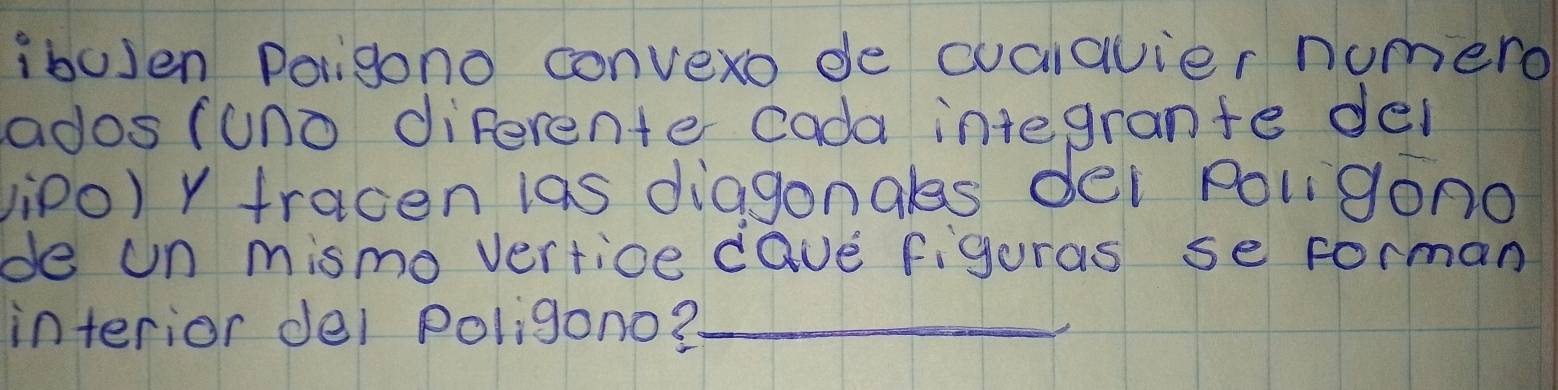 ibujen Poligono convexo de cualquier numero
ados (uno diferente cada integrante del
uipo) y tracen las diagonales del Poligono
de un mismo vertice ¿qué figuras se forman
interior del poligono?